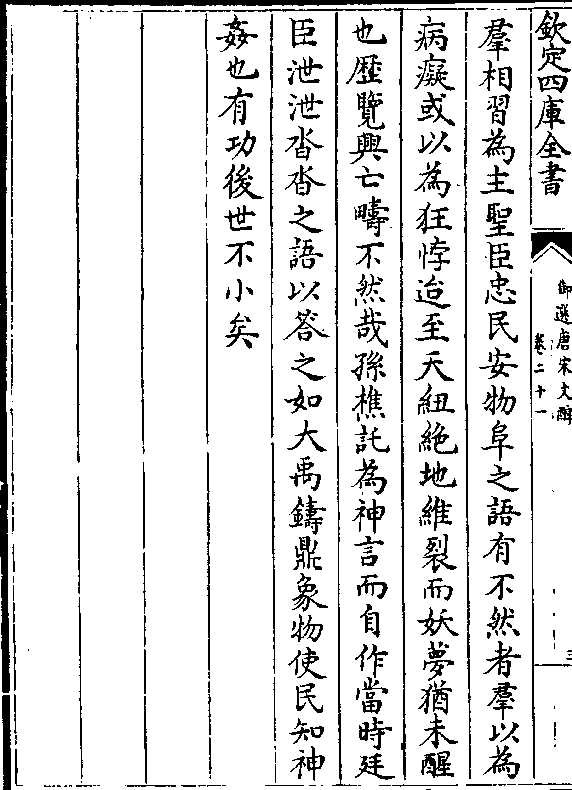 欽定四庫全書
御選唐宋文醇
卷二十一
三
羣相習為主聖臣忠民安物阜之語有不然者羣以為
病癡或以為狂悖迨至天紐絶地維裂而妖夢猶未醒
也歷覽興亡疇不然哉孫樵託為神言而自作當時廷
臣泄泄沓沓之語以答之如大禹鑄鼎象物使民知神
姦也有功後世不小矣